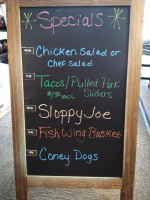 Specials
Chicken Salad or
Chef Salad
Tacos/Pulled Pork
Sliders
Sloppy Joe
Fish Wing Basket
Coney Dogs